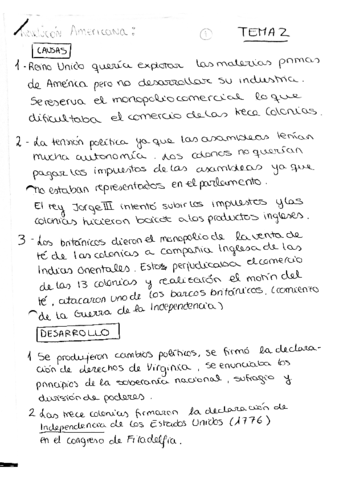 Revolución Americana: ① TEMA 2
CAUSAS
1 - Reino Unido quería explotar las materias primas
de América pero no desarrollar su industria.
Se reserva el monopolio comercial lo que
dificultaba el comercio de las trece colonias.
2 - La tensión política ya que las asambleas tenían
mucha autonomía. Los colonos no querían
pagar los impuestos de las asambleas ya que
no estaban representados en el parlamento.
El rey Jorge III intentó subir los impuestos y las
colonias hicieron boicot a los productos ingleses.
3 - Los británicos dieron el monopolio de la venta de
té de las colonias a compañia Inglesa de las
Indias Orientales. Estos perjudicaba el comercio
de las 13 colonias y realizarón el motín del
té, atacaron uno de los barcos británicos, (comiento
de la Guerra de la Independencia)
DESARROLLO
1 Se produjeron cambios políticos, se firmó la declara-
ción de derechos de Virginia, se enunciaba los
principios de la soberanía nacional, sufragio y
división de poderes.
2 Las trece colonias firmaron la declaración de
Independencia de los Estados Unidos (1776)
en el congreso de Filadelfia.